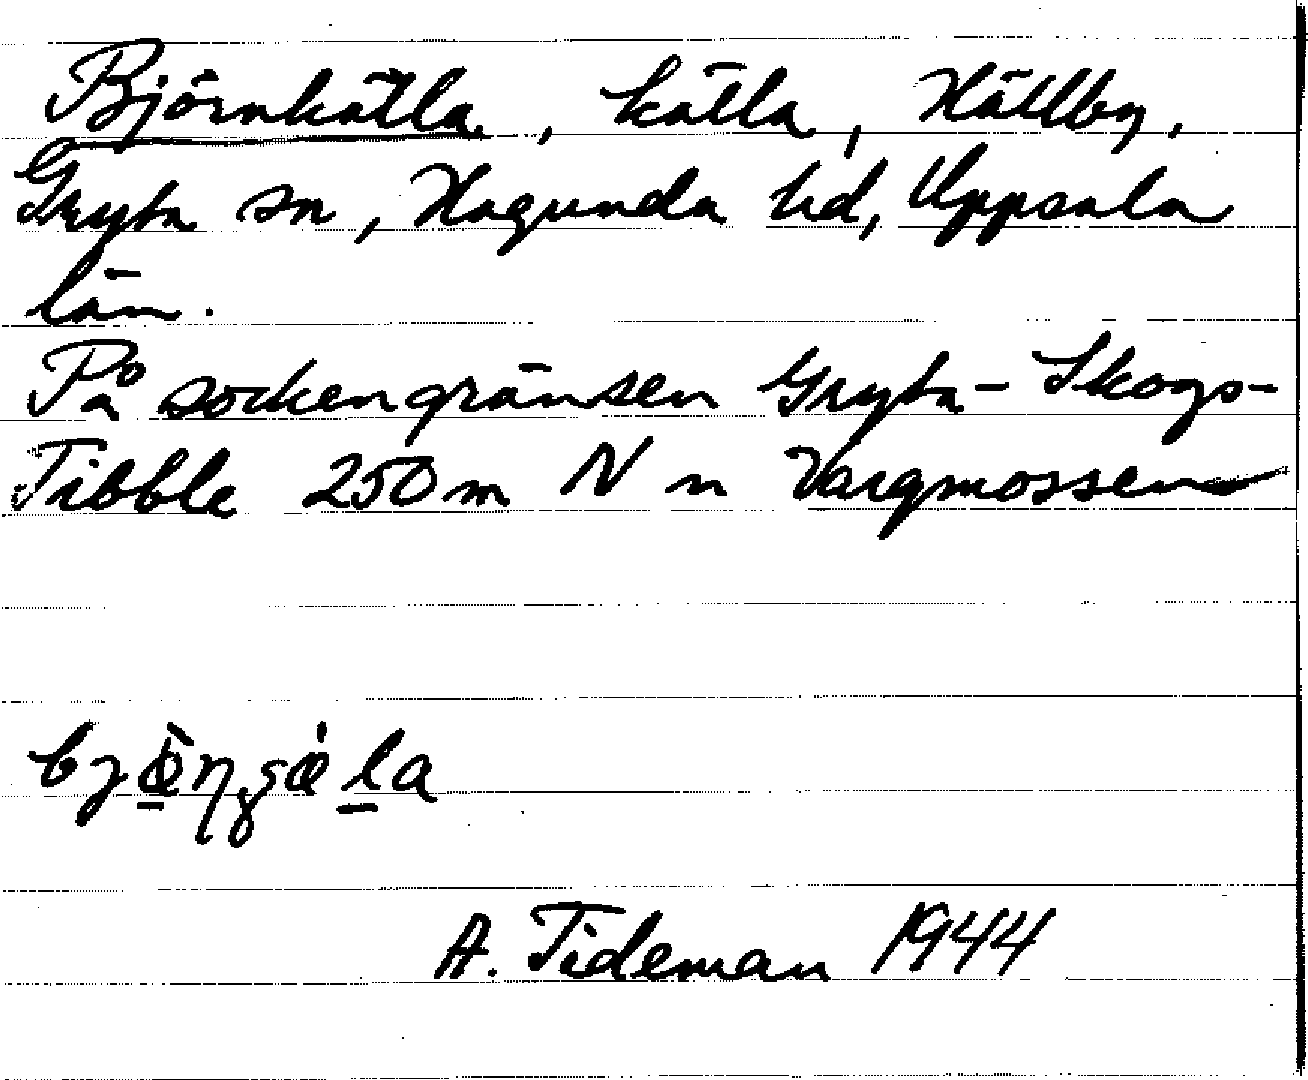 Björnkälla, källa, Hällby,
Gryta sn, Hagunda hd, Uppsala
län.
På sockengränsen Gryta - Skogs-
Tibble 250 m N n Vargmossen
A. Tideman 1944